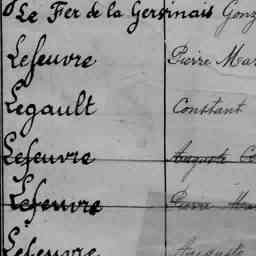 Le Fer de la Gervinais Gonz
Lefeuvre Pierre Mar
Legault Constant
Lefeuvre Auguste Co
Lefeuvre Pierre Mar
Lefeuvre Auguste